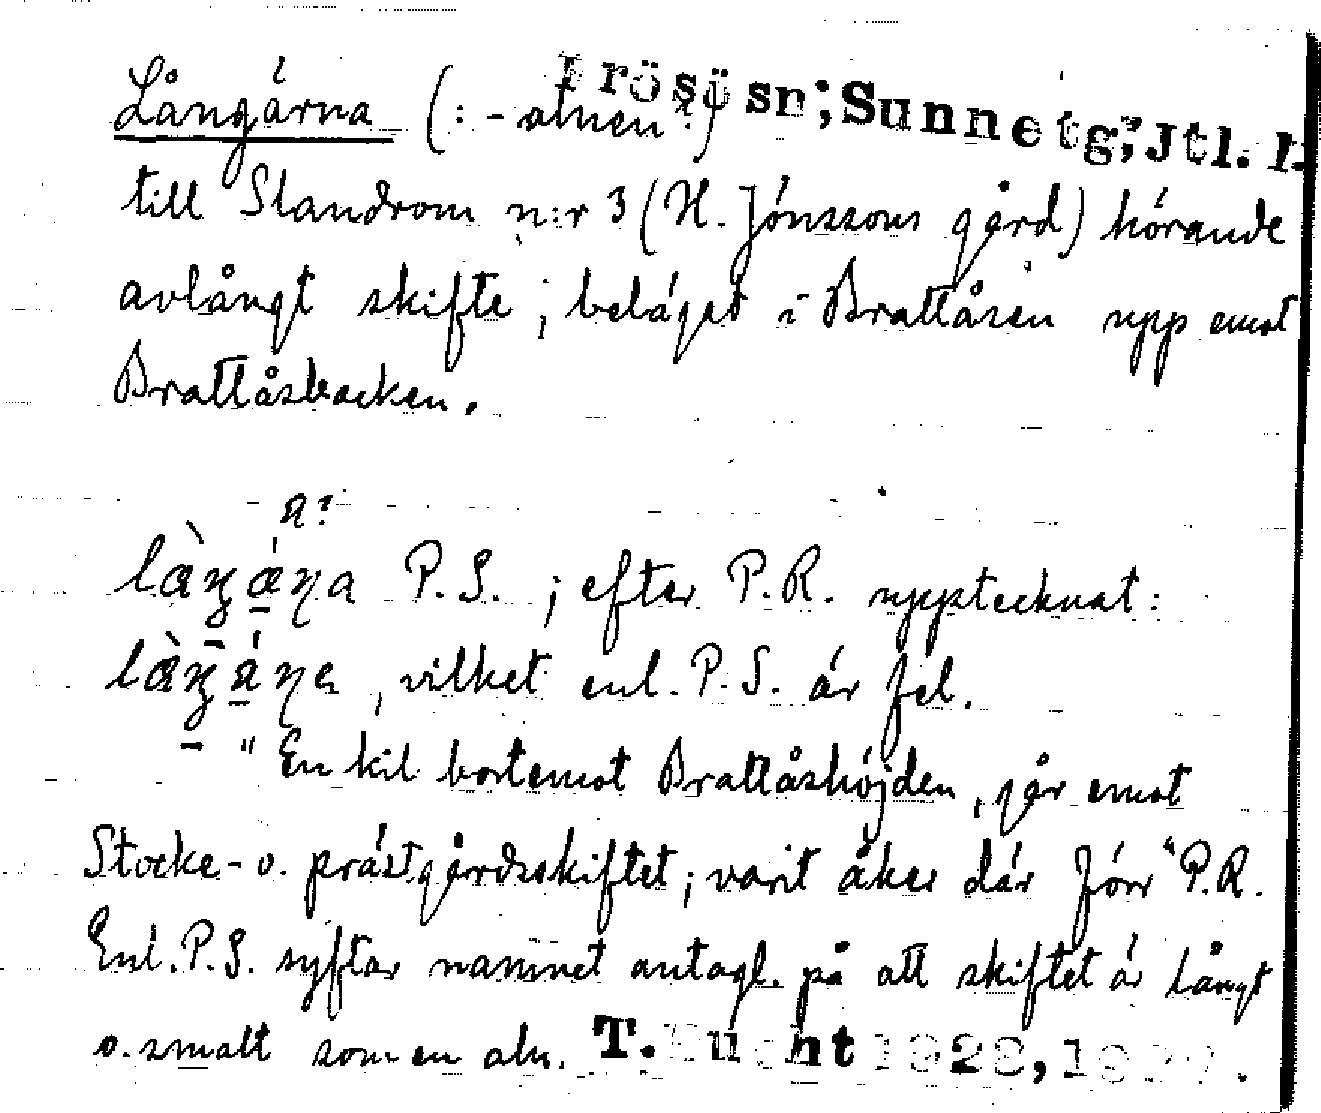 Långárna (: -alnen?) Frösö sn; Sunne tg; Jtl. l.
till Slandrom n:r 3 (H. Jónssons gård) hórande
avlångt skifte, beláget i Brattåsen upp emot
Brattåsbacken.
a?
làŋáɳa P.S. ; efter P.R. upptecknat:
làŋáɳe, vilket enl. P.S. ár fel.
" En kil bortemot Brattåshöjden, går emot
Stocke- o. prástgårdsskiftet; varit åker dár fórr" P.R.
Enl. P.S. syftar namnet antagl. på att skiftet ár långt
o. smalt som en aln. T. 1928, 19